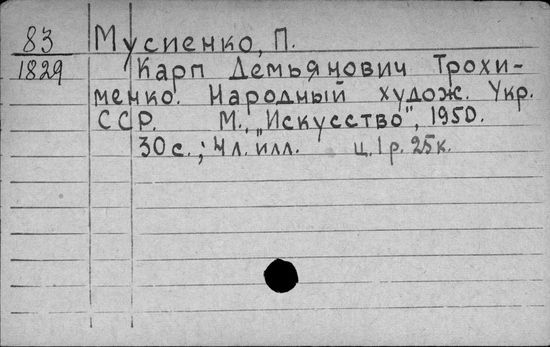 83 Мусиенко, П.
1829 Карп Демьянович Трохи-
менко. Народный худож. Укр.
ССР. М., „Искусство", 1950.
30 с.; 4 л. илл. ц. 1 р. 25 к.